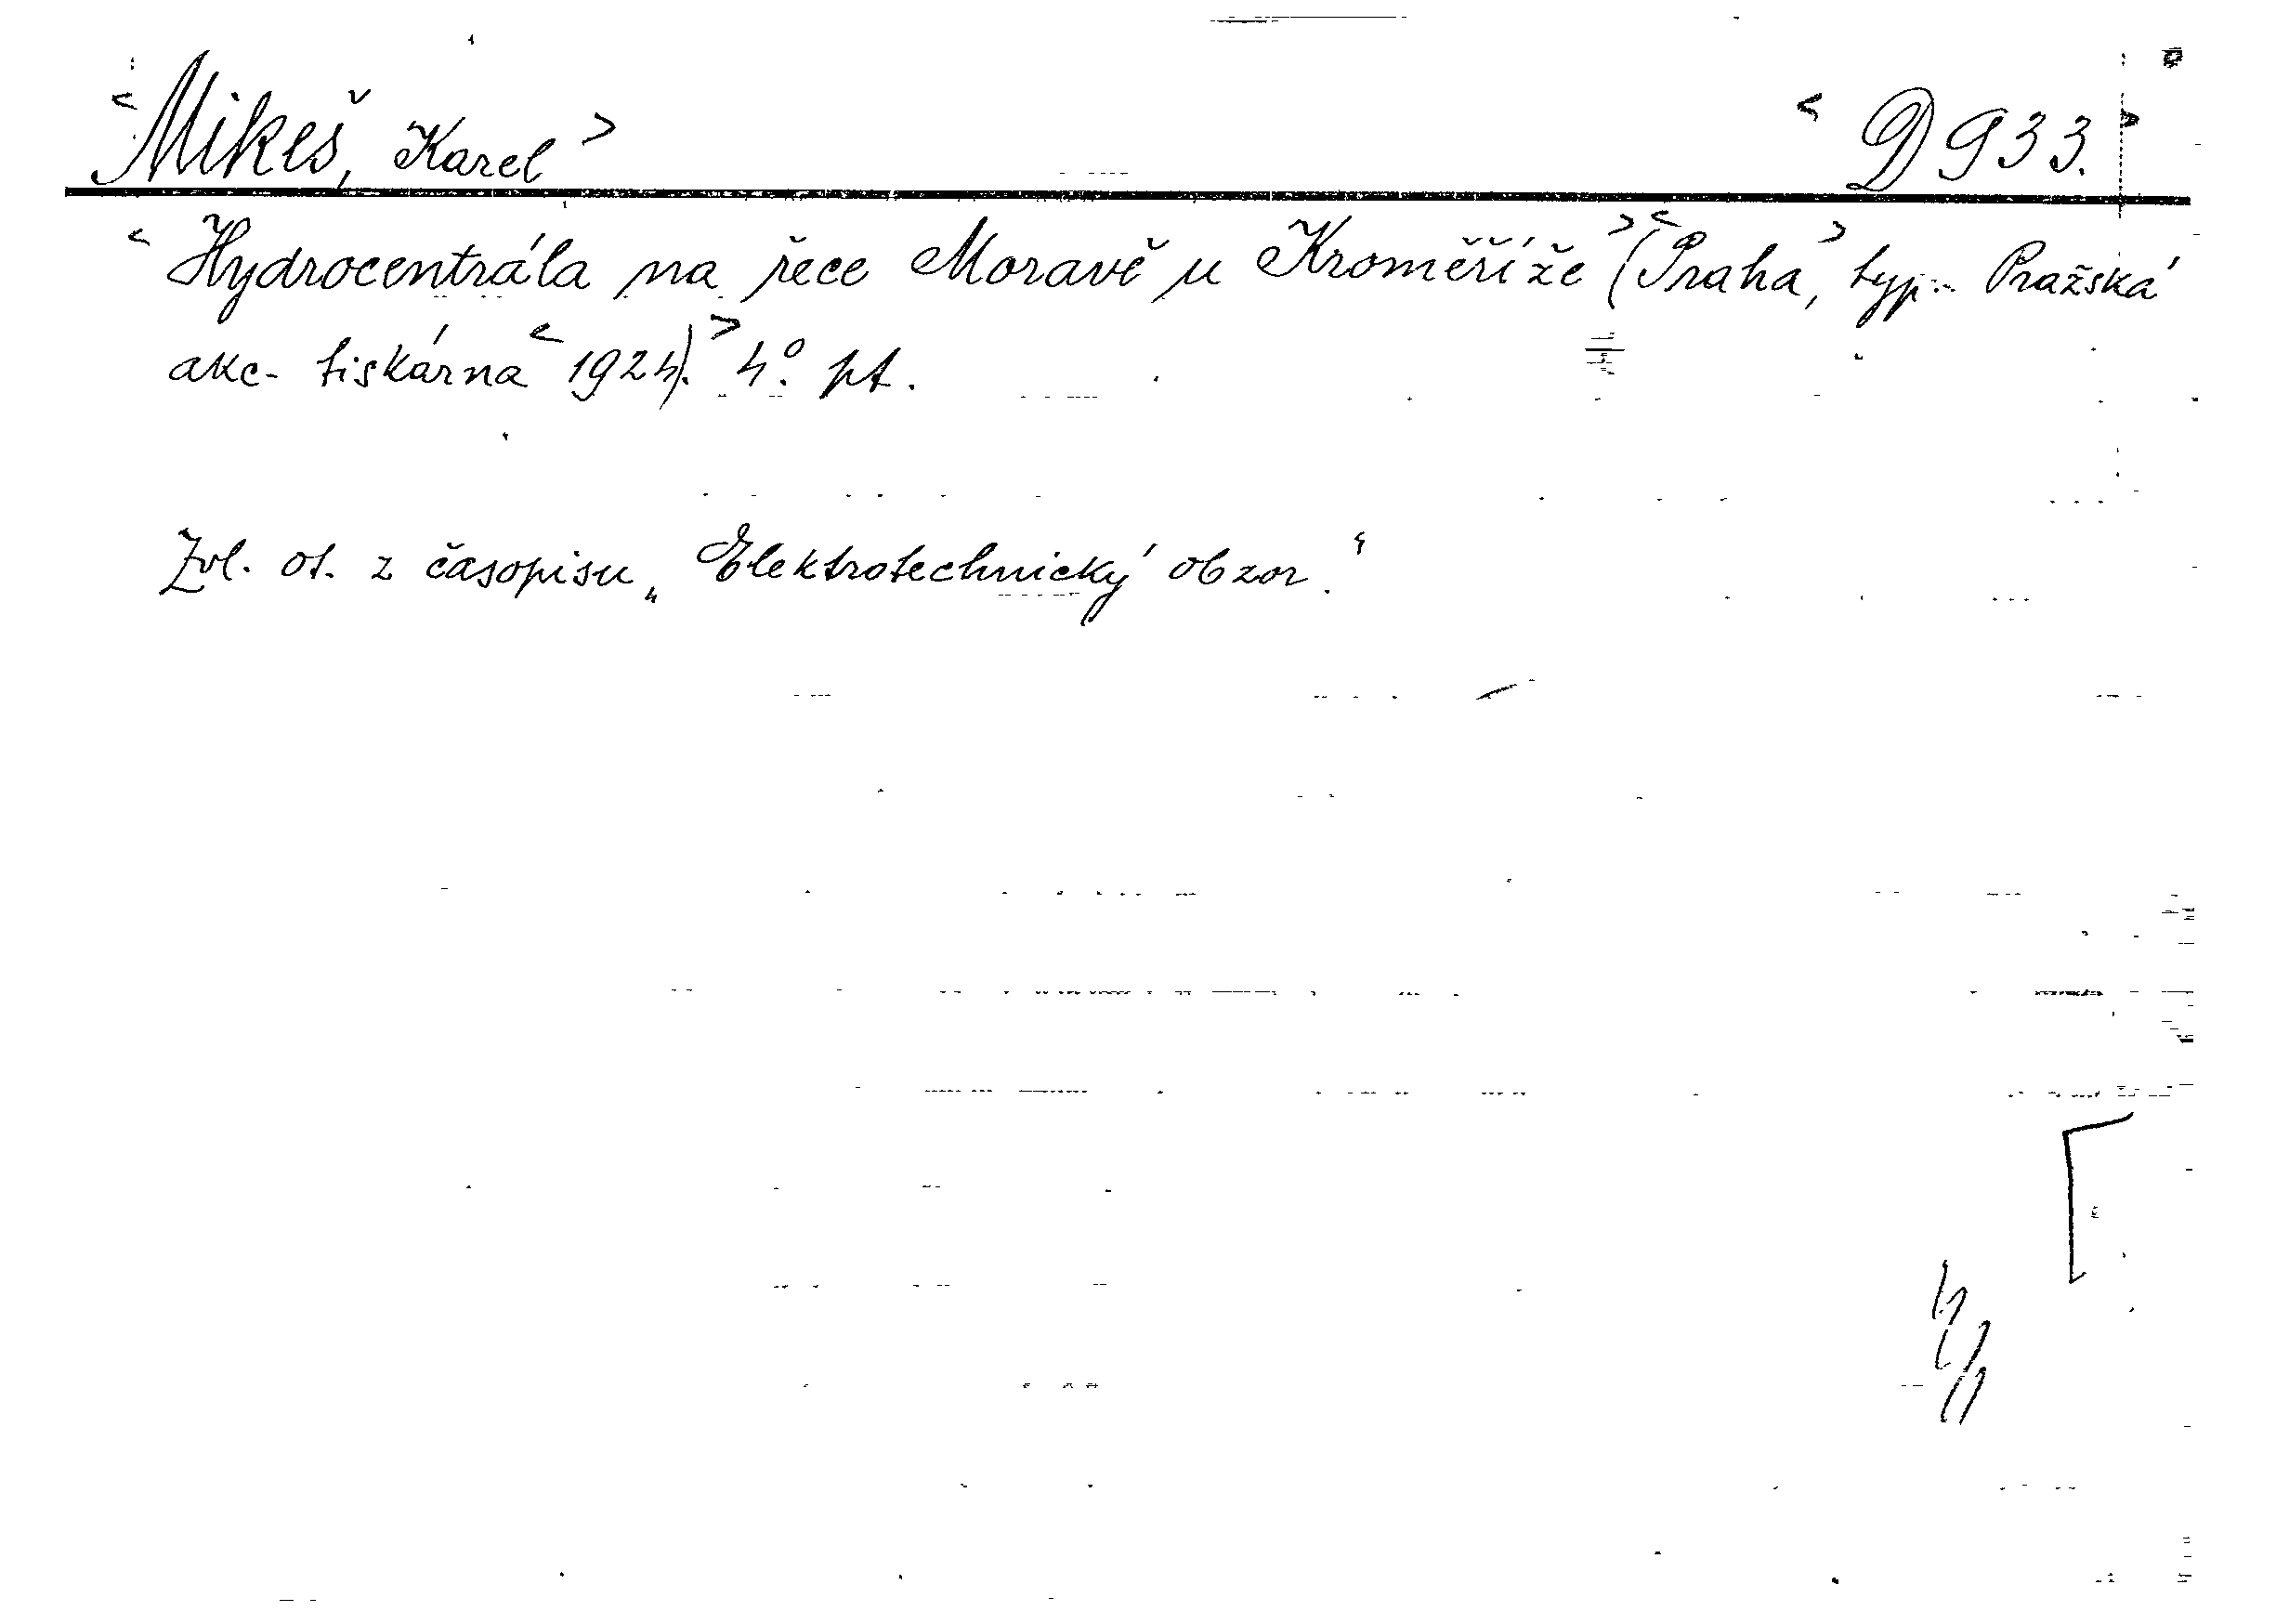 <Mikeš, Karel> <D 933.>
<Hydrocentrála na řece Moravě u Kroměříže> (<Praha,> typ. Pražská
akc. tiskárna <1924).> 4°. pt.
Zvl. ot. z časopisu „Elektrotechnický obzor.“